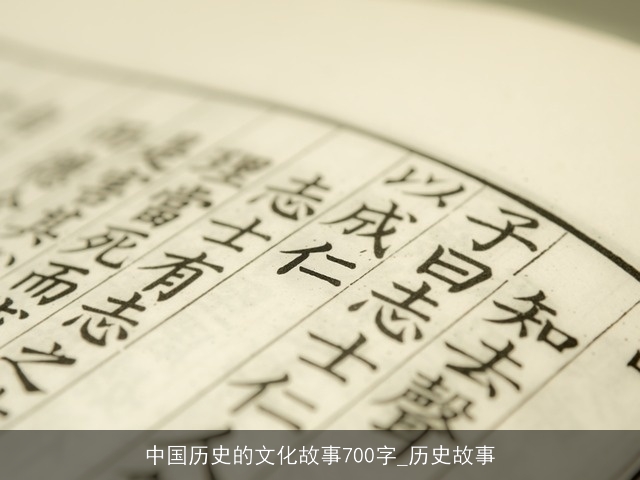 知去聲
子曰志士仁
以成仁
志士有志之
理當死而
是害其
中国历史的文化故事700字_历史故事